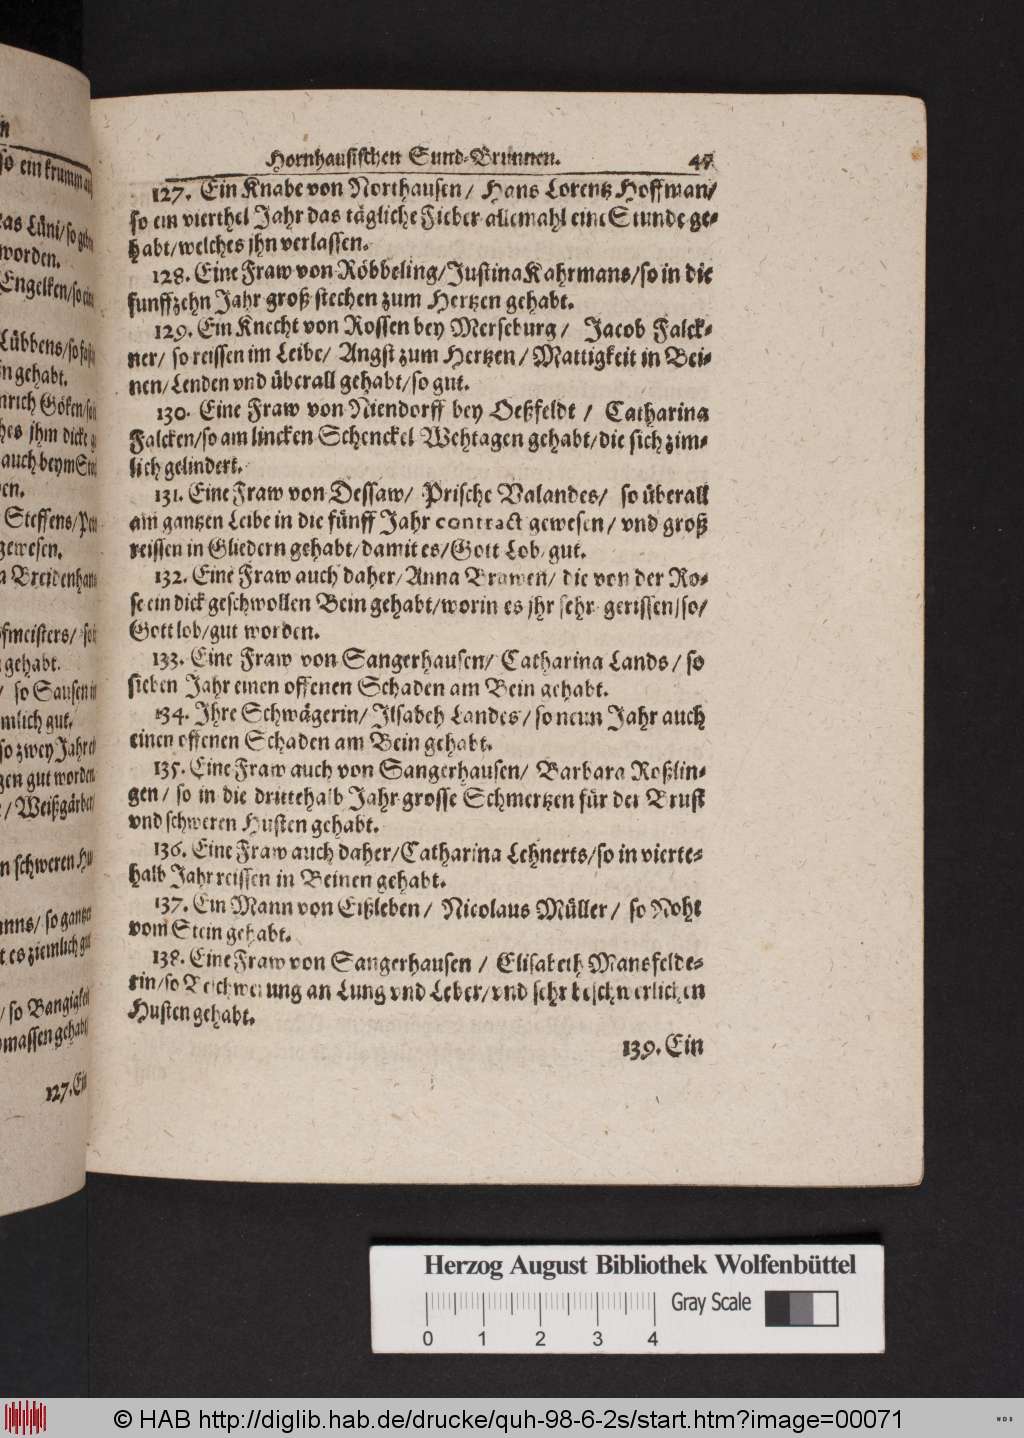 n
so ein krumm
as Lüni/ so
worden.
Engelken/ so
Lübbens/ so
n gehabt.
nrich Göken/
hes jhm dicke
auch beym
en.
Steffens/
gewesen.
a Breidenhau
fmeisters/
gehabt.
/ so Sausen
mlich gut.
so zwey Jahr
gen gut worden
/ Weißgärber
n schweren
nns/ so gantz
t es ziemlich gut
/ so Bangigkei
massen gehabt
127. Ein
Hornhausischen Gund-Brunnen. 47
127. Ein Knabe von Northausen/ Hans Lorentz Hoffman/
so ein vierthel Jahr das tägliche Fieber allemahl eine Stunde ge-
habt/ welches jhn verlassen.
128. Eine Fraw von Röbbeling/ Justina Kahrmans/ so in die
funffzehn Jahr groß stechen zum Hertzen gehabt.
129. Ein Knecht von Rossen bey Merseburg/ Jacob Falck-
ner/ so reissen im Leibe/ Angst zum Hertzen/ Mattigkeit in Bei-
nen/ Lenden vnd überall gehabt/ so gut.
130. Eine Fraw von Niendorff bey Oeßfeldt/ Catharina
Falcken/ so am lincken Schenckel Wehtagen gehabt/ die sich zim-
lich gelindert.
131. Eine Fraw von Dessaw/ Prische Valandes/ so überall
am gantzen Leibe in die fünff Jahr contract gewesen/ vnd groß
reissen in Gliedern gehabt/ damit es/ Gott Lob/ gut.
132. Eine Fraw auch daher/ Anna Brawen/ die von der Ro-
se ein dick geschwollen Bein gehabt/ worin es jhr sehr gerissen/ so/
Gott lob/ gut worden.
133. Eine Fraw von Sangerhausen/ Catharina Lands/ so
sieben Jahr einen offenen Schaden am Bein gehabt.
134. Ihre Schwägerin/ Ilsabeh Landes/ so neun Jahr auch
einen offenen Schaden am Bein gehabt.
135. Eine Fraw auch von Sangerhausen/ Barbara Roßlin-
gen/ so in die drittehalb Jahr grosse Schmertzen für der Brust
vnd schweren Husten gehabt.
136. Eine Fraw auch daher/ Catharina Lehnerts/ so in vierte-
halb Jahr reissen in Beinen gehabt.
137. Ein Mann von Eißleben/ Nicolaus Müller/ so Noht
vom Stein gehabt.
138. Eine Fraw von Sangerhausen/ Elisabeth Mansfelde-
rin/ so Beschwerung an Lung vnd Leber/ vnd sehr beschwerlichen
Husten gehabt.
139. Ein
Herzog August Bibliothek Wolfenbüttel
Gray Scale
0 1 2 3 4
© HAB http://diglib.hab.de/drucke/quh-98-6-2s/start.htm?image=00071